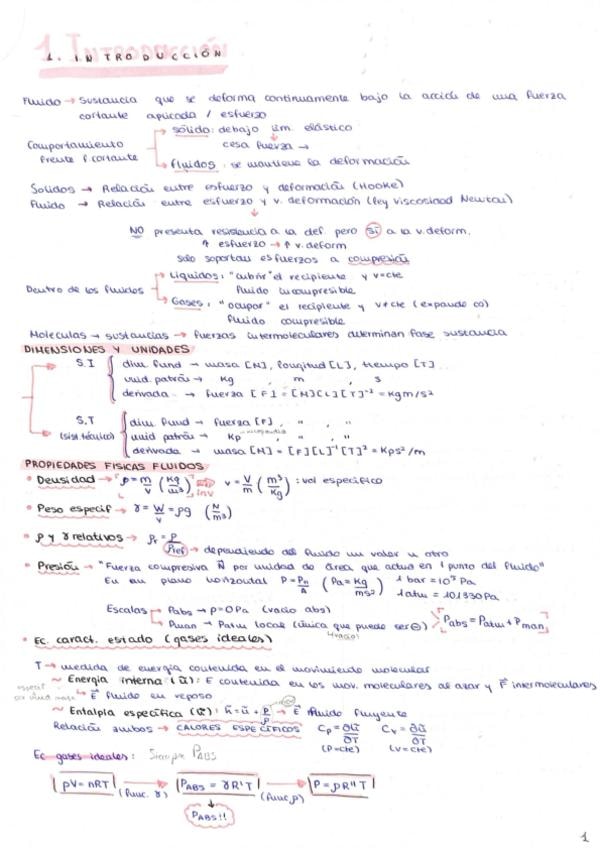 1. INTRODUCCIÓN
1. INTRODUCCIÓN
Fluido → Sustancia que se deforma continuamente bajo la acción de una fuerza
cortante aplicada / esfuerzo
Comportamiento frente f cortante
sólido: debajo lím. elástico
cesa fuerza →
fluidos: se mantiene la deformación
Solidos → Relación entre esfuerzo y deformación (HOOKE)
Fluido → Relación entre esfuerzo y v. deformación (ley viscosidad Newton)
↓
NO presenta resistencia a la def. pero SÍ a la v.deform.
↑ esfuerzo → ↑ v.deform
solo soportan esfuerzos a compresión
Dentro de los fluidos
Líquidos: "cubrir" el recipiente y v=cte
fluido incompresible
Gases: "ocupar" el recipiente y v≠cte (expande ∞)
fluido compresible
Moleculas → sustancias → fuerzas intermoleculares determinan fase sustancia
DIMENSIONES Y UNIDADES
S.I
dim. fund → masa [M], longitud [L], tiempo [T]
unid. patrón → Kg , m , s
derivada → fuerza [F] = [M][L][T]⁻² = Kgm/s²
S.T (sist. técnico)
dim fund → fuerza [F], " , "
unid patrón → Kp , " , "
derivada → masa [M] = [F][L]⁻¹[T]² = Kps²/m
PROPIEDADES FISICAS FLUIDOS
• Densidad → ρ = m/v (Kg/m³) ⇒ inv v = V/m (m³/Kg) : vol especifico
• Peso especif → γ = W/v = ρg (N/m³)
• ρ y γ relativos → ρr = ρ/ρref → dependiendo del fluido un valor u otro
• Presión → "Fuerza compresiva N por unidad de área que actua en 1 punto del fluido"
En un plano horizontal P = Pn/A (Pa = Kg/ms²) 1 bar = 10⁵ Pa
1 atm = 101330 Pa
Escalas
Pabs → p=0Pa (vacío abs)
Pman → Patm local (única que puede ser ⊖)
vacío
Pabs = Patm + Pman
• Ec. caract. estado (gases ideales)
T → medida de energía contenida en el movimiento molecular
~ Energía interna (ũ): E contenida en los mov. moleculares al azar y F intermoleculares
→ E fluido en reposo
~ Entalpía específica: h̃ = ũ + P/ρ → E fluido fluyente
Relación ambos → CALORES ESPECÍFICOS Cp = ∂h̃/∂T (P=cte) Cv = ∂ũ/∂T (V=cte)
Ec gases ideales: Siempre PABS
pV = nRT → (func. γ) PABS = γR'T → (func. ρ) P = ρR''T
↓
PABS!!
1